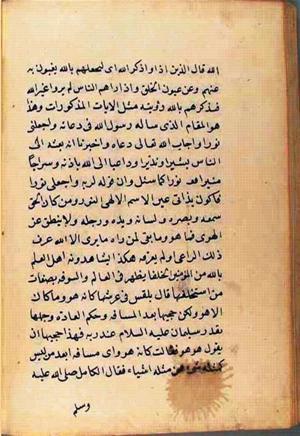 الله قال الذين اذا راوا ذكر الله اى لتحققهم بالله يغيبون به
عنهم وعن عيون الخلق واذا راهم الناس لم يروا غير الله
فتذكرهم بالله رؤيته مثل الايات المذكورات وهذا
هو المقام الذى ساله رسول الله فى دعائه واجعلنى
نورا واجاب الله تعالى دعاه واخبرنا انه بعثه الى
الناس بشيرا ونذيرا وداعيا الى الله باذنه وسراجا
منيرا فعد نورا كما سئل وان قوله لربه واجعلنى نورا
فاكون بذاتى عين الاسم الالهى النور ومن كان الحق
سمعه وبصره ولسانه ويده ورجله ولا ينطق عن
الهوى فما هو وما بقى لمن راه ما يرى الا الله عرف
ذلك الرائى ولم يعرفه هكذا يشاهدونه اهل العلم
بالله من المؤمنين الخلفا يظهر فى العالم والسوقه بصفات
من استخلفها قال بلقيس فى عرشها كانه هو وما كان
الا هو ولكن حجبها بعد المسافه وحكم العادة وجهلها
بقدر سليمان عليه السلام عند ربه فهذا حجبها ان
يقول هو هو فقالت كانه هو واى مسافه ابعد من ليس
كمثله شئ ممن مثله اشياء فقال الكامل صلى الله عليه
وسلم